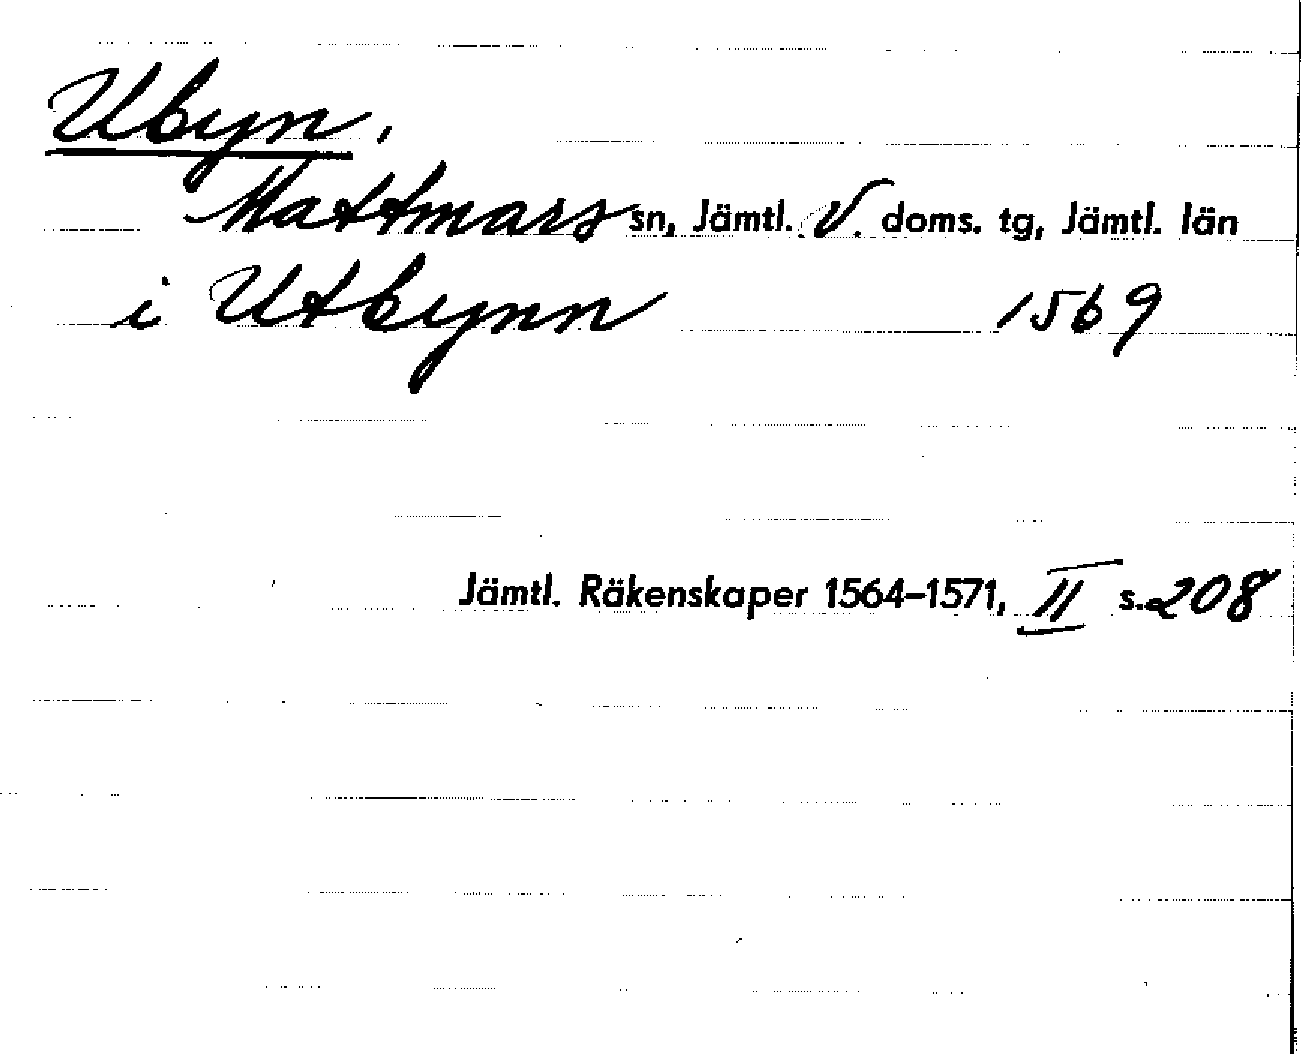 Ubyn,
Mattmars sn, Jämtl. V. doms. tg, Jämtl. län
i Utbynn 1569
Jämtl. Räkenskaper 1564–1571, II s. 208